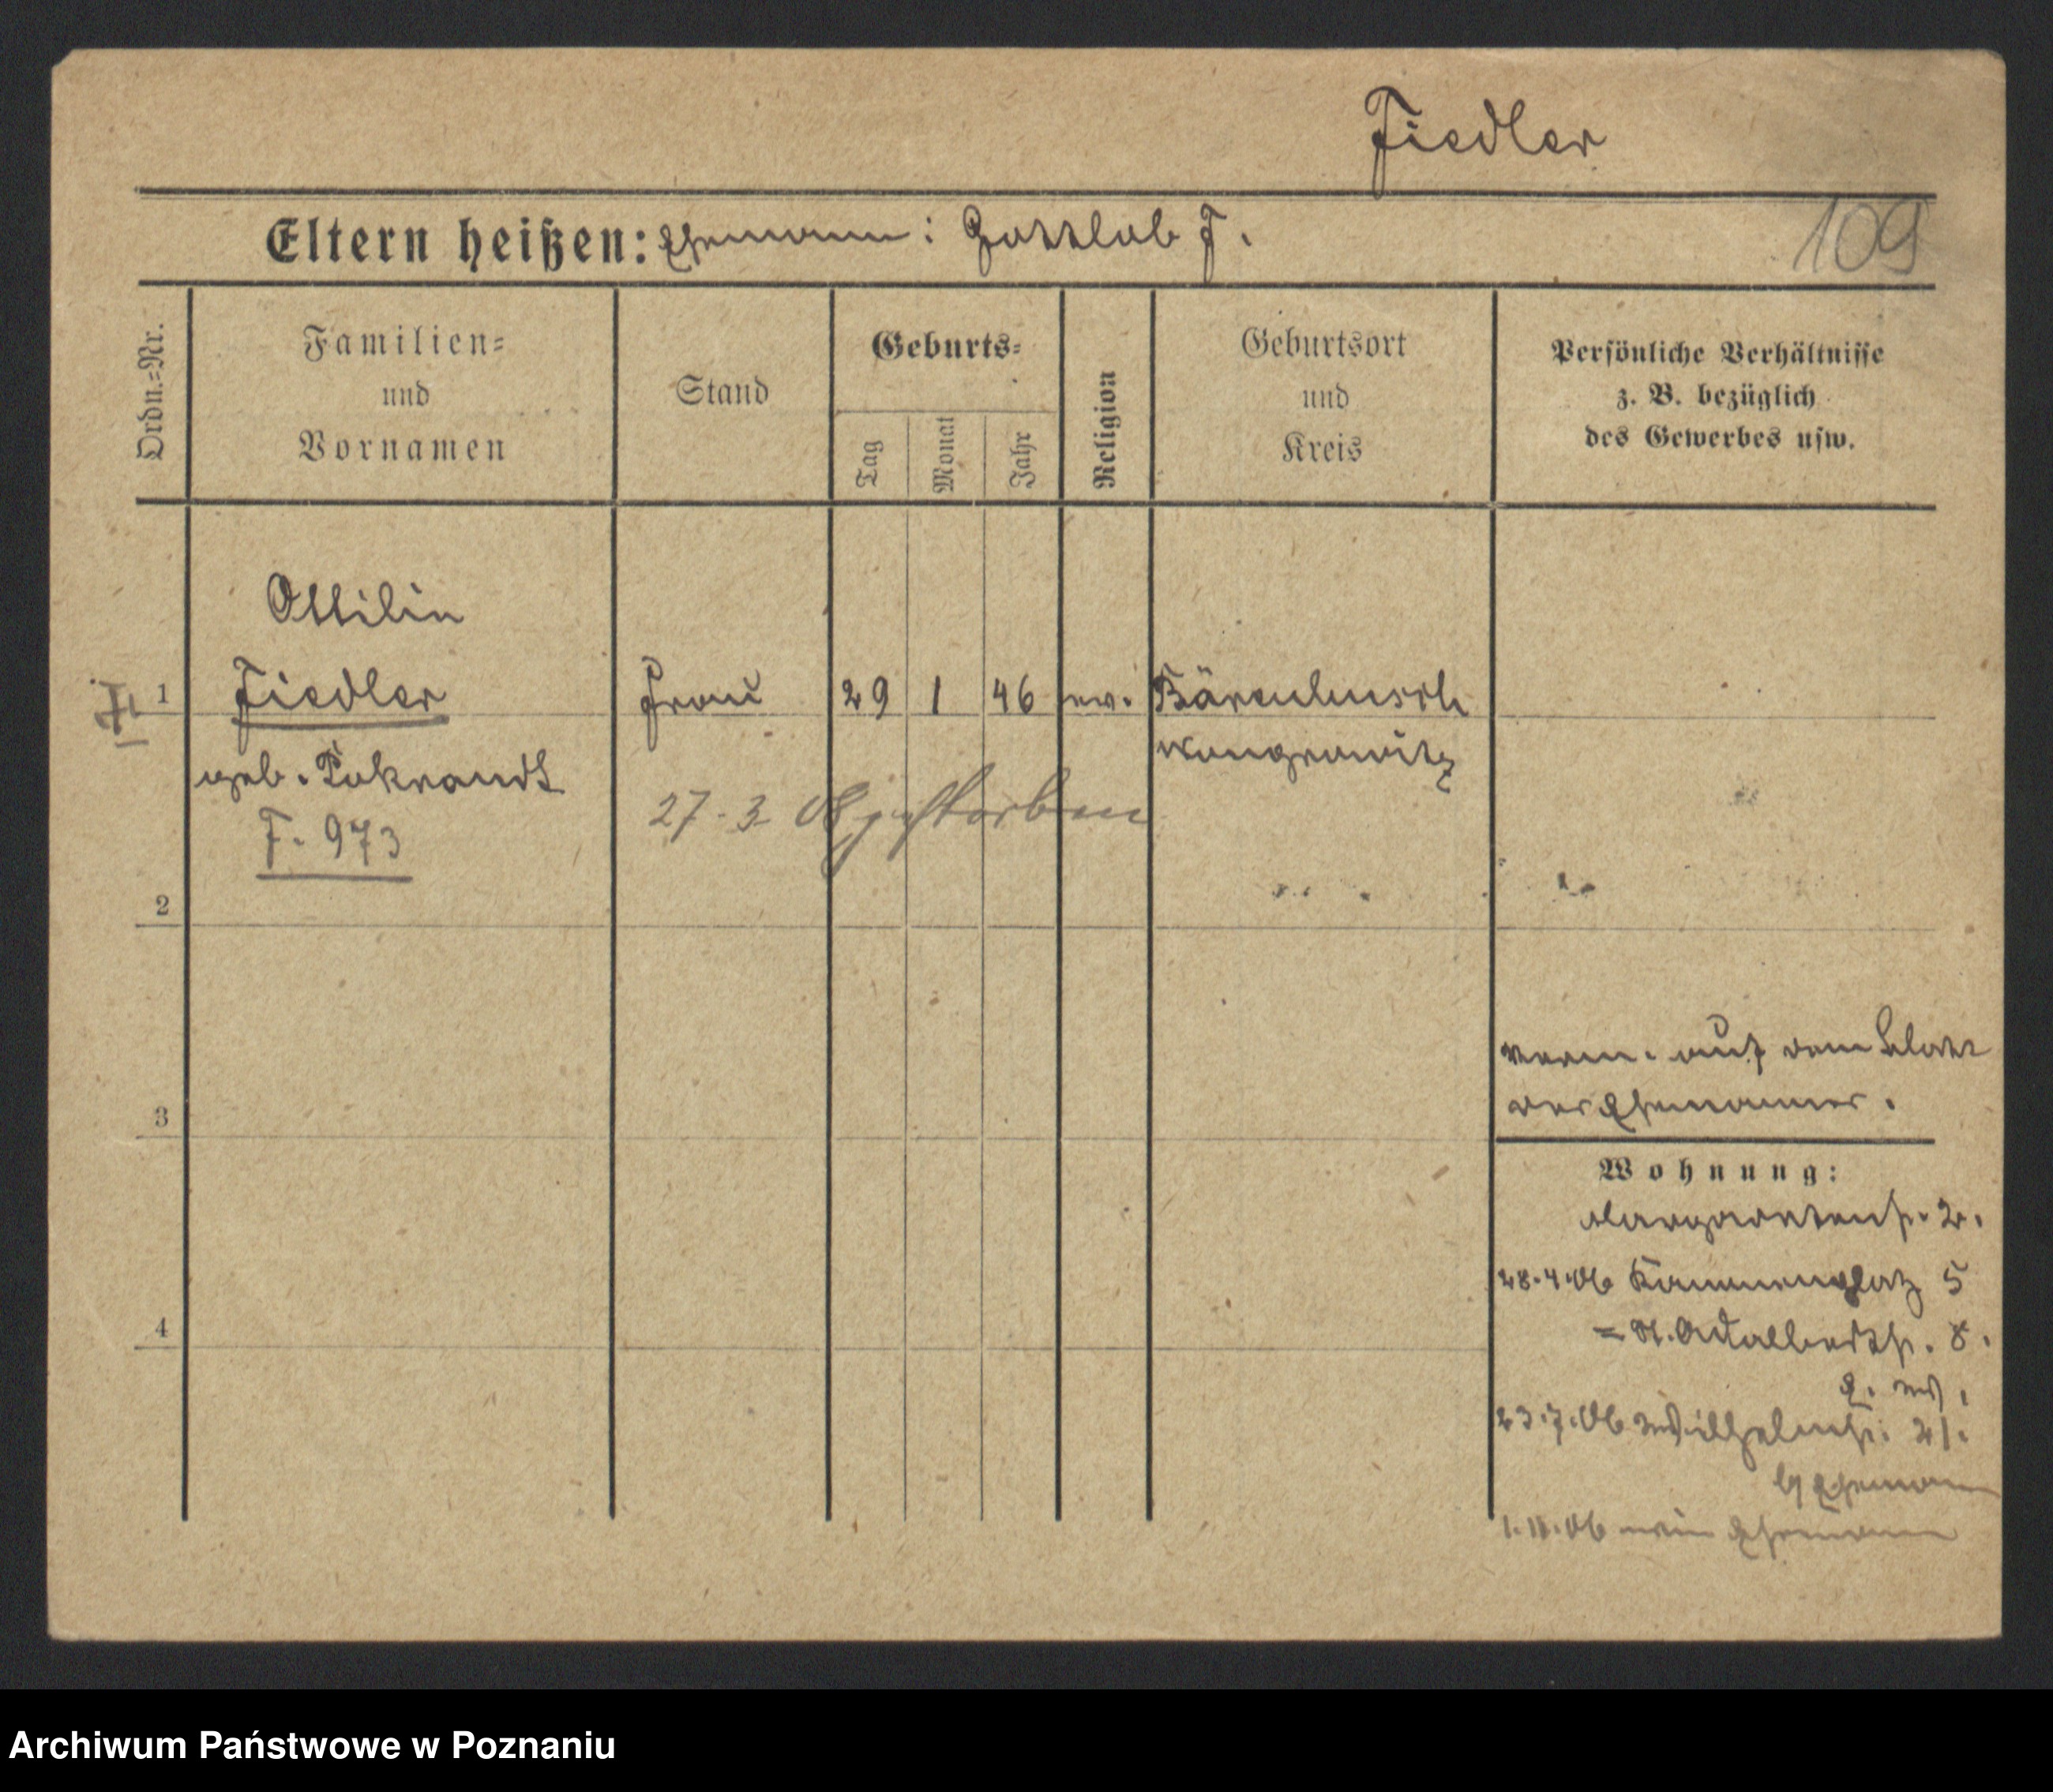 Fiedler
109
Eltern heißen: Ehemann: Gottlob F.
Ordn.-Nr.
Familien-
und
Vornamen
Stand
Geburts-
Tag
Monat
Jahr
Religion
Geburtsort
und
Kreis
Persönliche Verhältnisse
z. B. bezüglich
des Gewerbes usw.
Ottilie
1 Fiedler Frau 29 1 46 ev. Bärenbusch
Wongrowitz
geb. Pokrandt
27. 3. 08 gestorben
F. 973
2
3
4
verm. auf dem Blatt
des Ehemannes.
Wohnung:
Margaretenstr. 2.
28.4.06 Kanonenplatz 5
= St. Adalbertstr. 8.
23.7.06 Wilhelmstr. 21.
b/ Ehemann
1.11.06 Ehemann
Archiwum Państwowe w Poznaniu